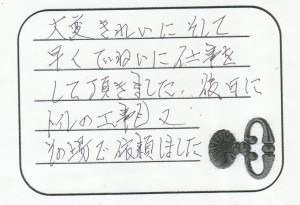 大変きれいにそして
早くていねいに仕事を
して頂きました。後日に
トイレの工事も又
その場で依頼しました